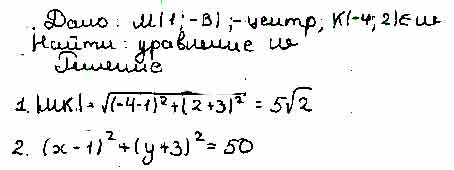 Дано: M(1; -3), - центр, K(-4; 2) ∈ ω
Найти: уравнение ω
Решение
1. |MK| = √(-4-1)² + (2+3)² = 5√2
2. (x-1)² + (y+3)² = 50